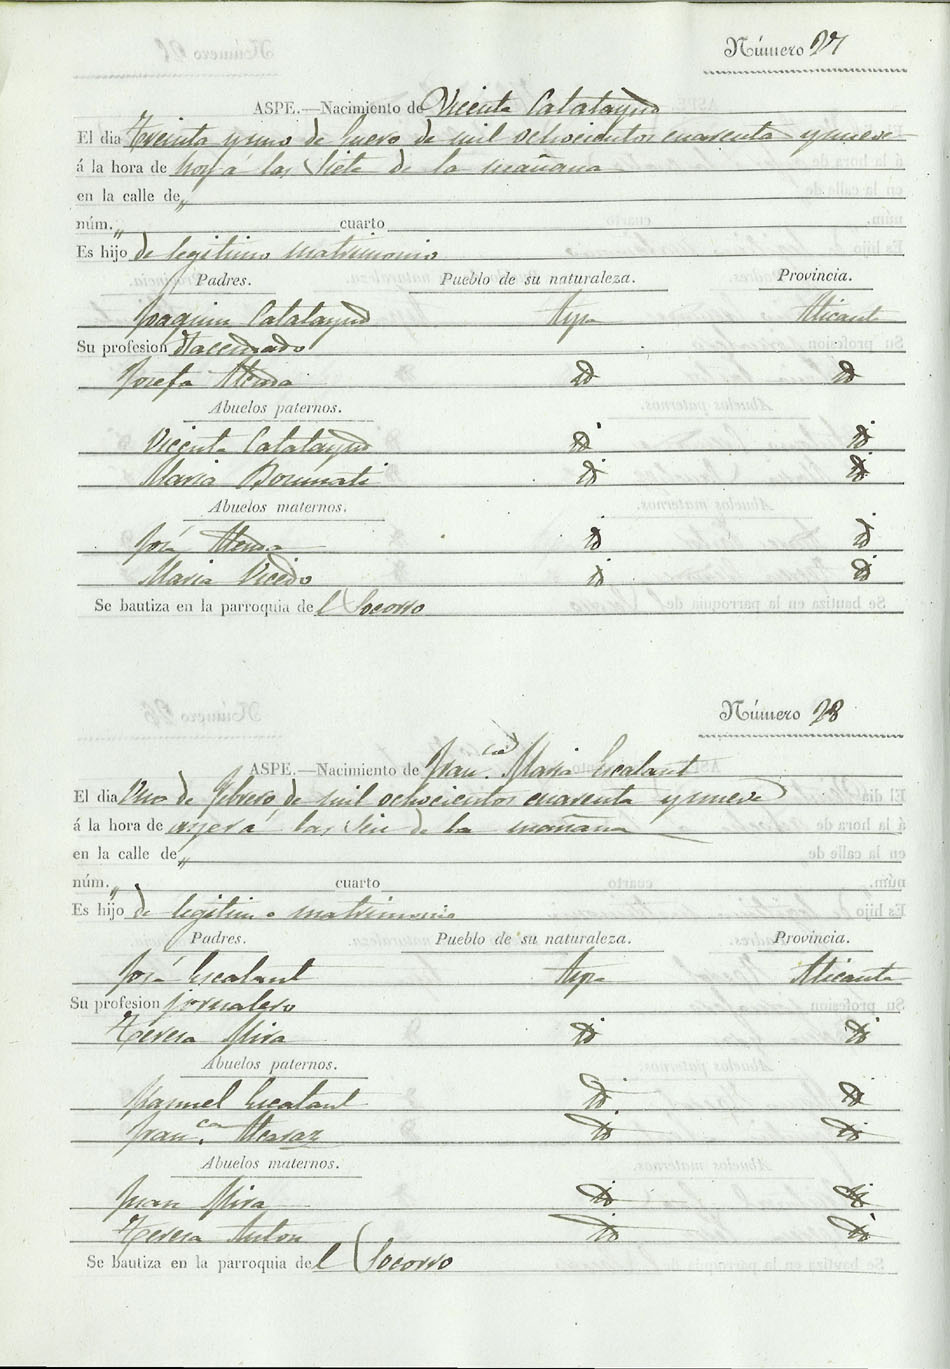 Número 27
ASPE.—Nacimiento de Vicente Calatayud
El dia Treinta y uno de Enero de mil ochocientos cuarenta y nueve
á la hora de hoy á las siete de la mañana
en la calle de „
núm. „ cuarto
Es hijo de legitimo matrimonio
Padres. Pueblo de su naturaleza. Provincia.
Joaquin Calatayud Aspe Alicante
Su profesion Hacendado
Josefa id id
Abuelos paternos.
Vicente Calatayud id id
Maria Bonmati id id
Abuelos maternos.
José id id
Maria Vicedo id id
Se bautiza en la parroquia del Socorro
Número 28
ASPE.—Nacimiento de Fran.ca Maria Escalant
El dia Uno de Febrero de mil ochocientos cuarenta y nueve
á la hora de ayer á las seis de la mañana
en la calle de „
núm. „ cuarto
Es hijo de legitimo matrimonio
Padres. Pueblo de su naturaleza. Provincia.
José Escalant Aspe Alicante
Su profesion jornalero
Teresa Mira id id
Abuelos paternos.
Manuel Escalant id id
Fran.ca Alcaraz id id
Abuelos maternos.
Juan Mira id id
Teresa Anton id id
Se bautiza en la parroquia del Socorro